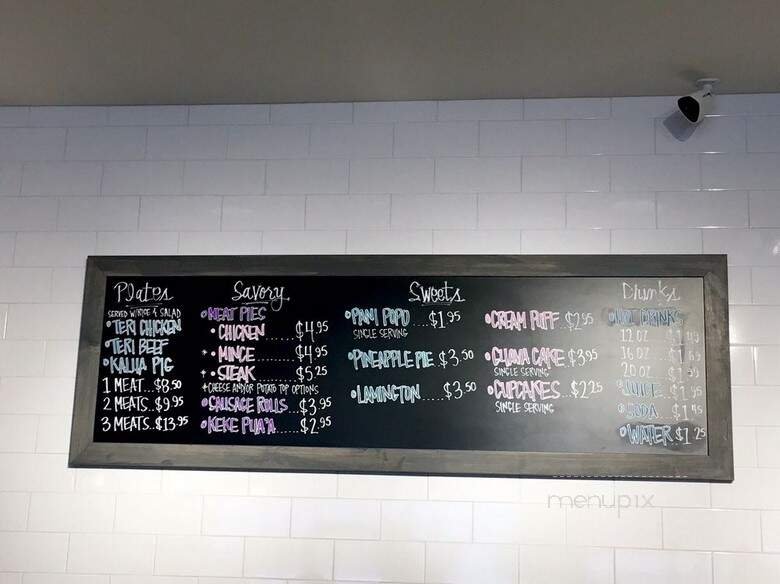 Plates
SERVED W/RICE & SALAD
•TERI CHICKEN
•TERI BEEF
•KALUA PIG
1 MEAT...$8.50
2 MEATS..$9.95
3 MEATS..$13.95
Savory
•MEAT PIES
•CHICKEN.....$4.95
+•MINCE......$4.95
+•STEAK......$5.25
+CHEESE AND/OR POTATO TOP OPTIONS
•SAUSAGE ROLLS...$3.95
•KEKE PUA'A......$2.95
Sweets
•PANI POPO...$1.95
SINGLE SERVING
•PINEAPPLE PIE $3.50
•LAMINGTON....$3.50
•CREAM PUFF..$2.95
•GUAVA CAKE.$3.95
SINGLE SERVING
•CUPCAKES..$2.25
SINGLE SERVING
Drinks
DRINKS
12 OZ
16 OZ
20 OZ
•JUICE $1.95
•SODA $1.45
•WATER $1.25
menupix